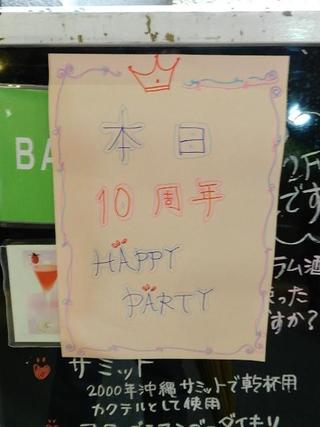 本日
10周年
HAPPY
PARTY
BA
2F
です
ラム酒
った
すか?
サミット
2000年沖縄サミットで乾杯用
カクテルとして使用